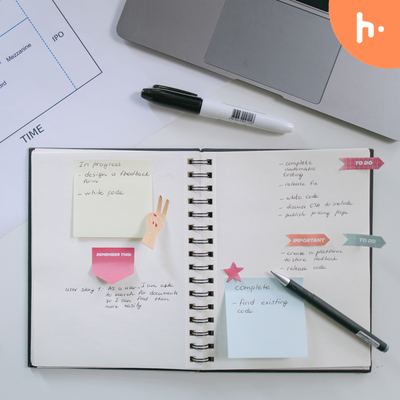 h.
Mezzanine
IPO
TIME
In progress
- design a feedback
form
- write code
REMEMBER THIS!
User story 1: As a user, I am able
to search for documents
so I can find them
more easily
- complete
automatic
testing
- release fix
- write code
- publish pricing
TO DO
IMPORTANT
TO DO
- create a platform
to store feedback
- release code
complete
- find existing
code